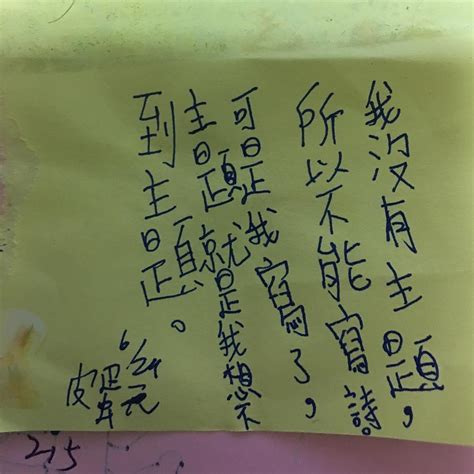 我沒有主題，
所以不能寫詩。
可是我寫了，
主題就是我想不
到主題。
皮
215